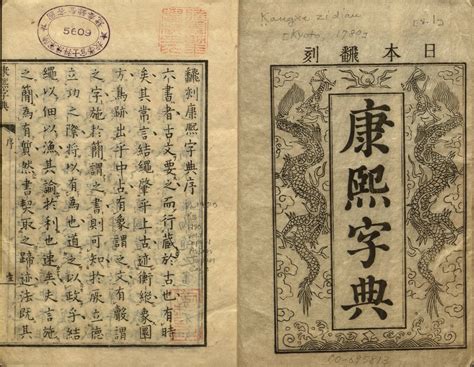 日本飜刻
康熙字典
Kangxi zidian
飜刻康熙字典序
六書者古文要之而行藏於古也有時
矣其常言結繩肇乎上古迹衡縱象圓
方爲跡出乎中古有像謂之文有謂
之字施於簡謂之書則可知於厥立德
立功之際將以有爲也道之以政乎結
繩以佃以漁其諭於利也速矣史言施
之簡爲有然書契取之迹法既其
康熙字典
序
5609